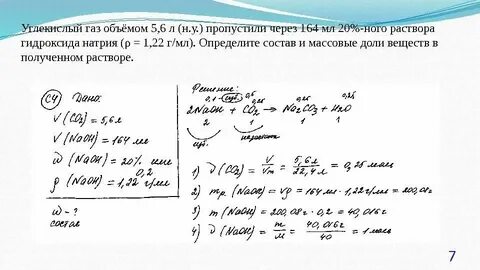 Углекислый газ объёмом 5,6 л (н.у.) пропустили через 164 мл 20%-ного раствора
гидроксида натрия (ρ = 1,22 г/мл). Определите состав и массовые доли веществ в
полученном растворе.
C4
Дано:
V(CO₂) = 5,6л
V(NaOH) = 164 мл
ω(NaOH) = 20% или
0,2
ρ(NaOH) = 1,22 г/мл
ω - ?
состав
Решение:
0,25 0,25 0,25
2NaOH + CO₂ → Na₂CO₃ + H₂O
2 1 1 1
изб. недостаток
1) ν(CO₂) = V/Vm = 5,6л/22,4л = 0,25 моль
2) mр(NaOH) = Vρ = 164 мл · 1,22 г/мл = 200,08г
3) m(NaOH) = 200,08г · 0,2 = 40,016г
4) ν(NaOH) = m/M = 40,016г/40 = 1 моль
7